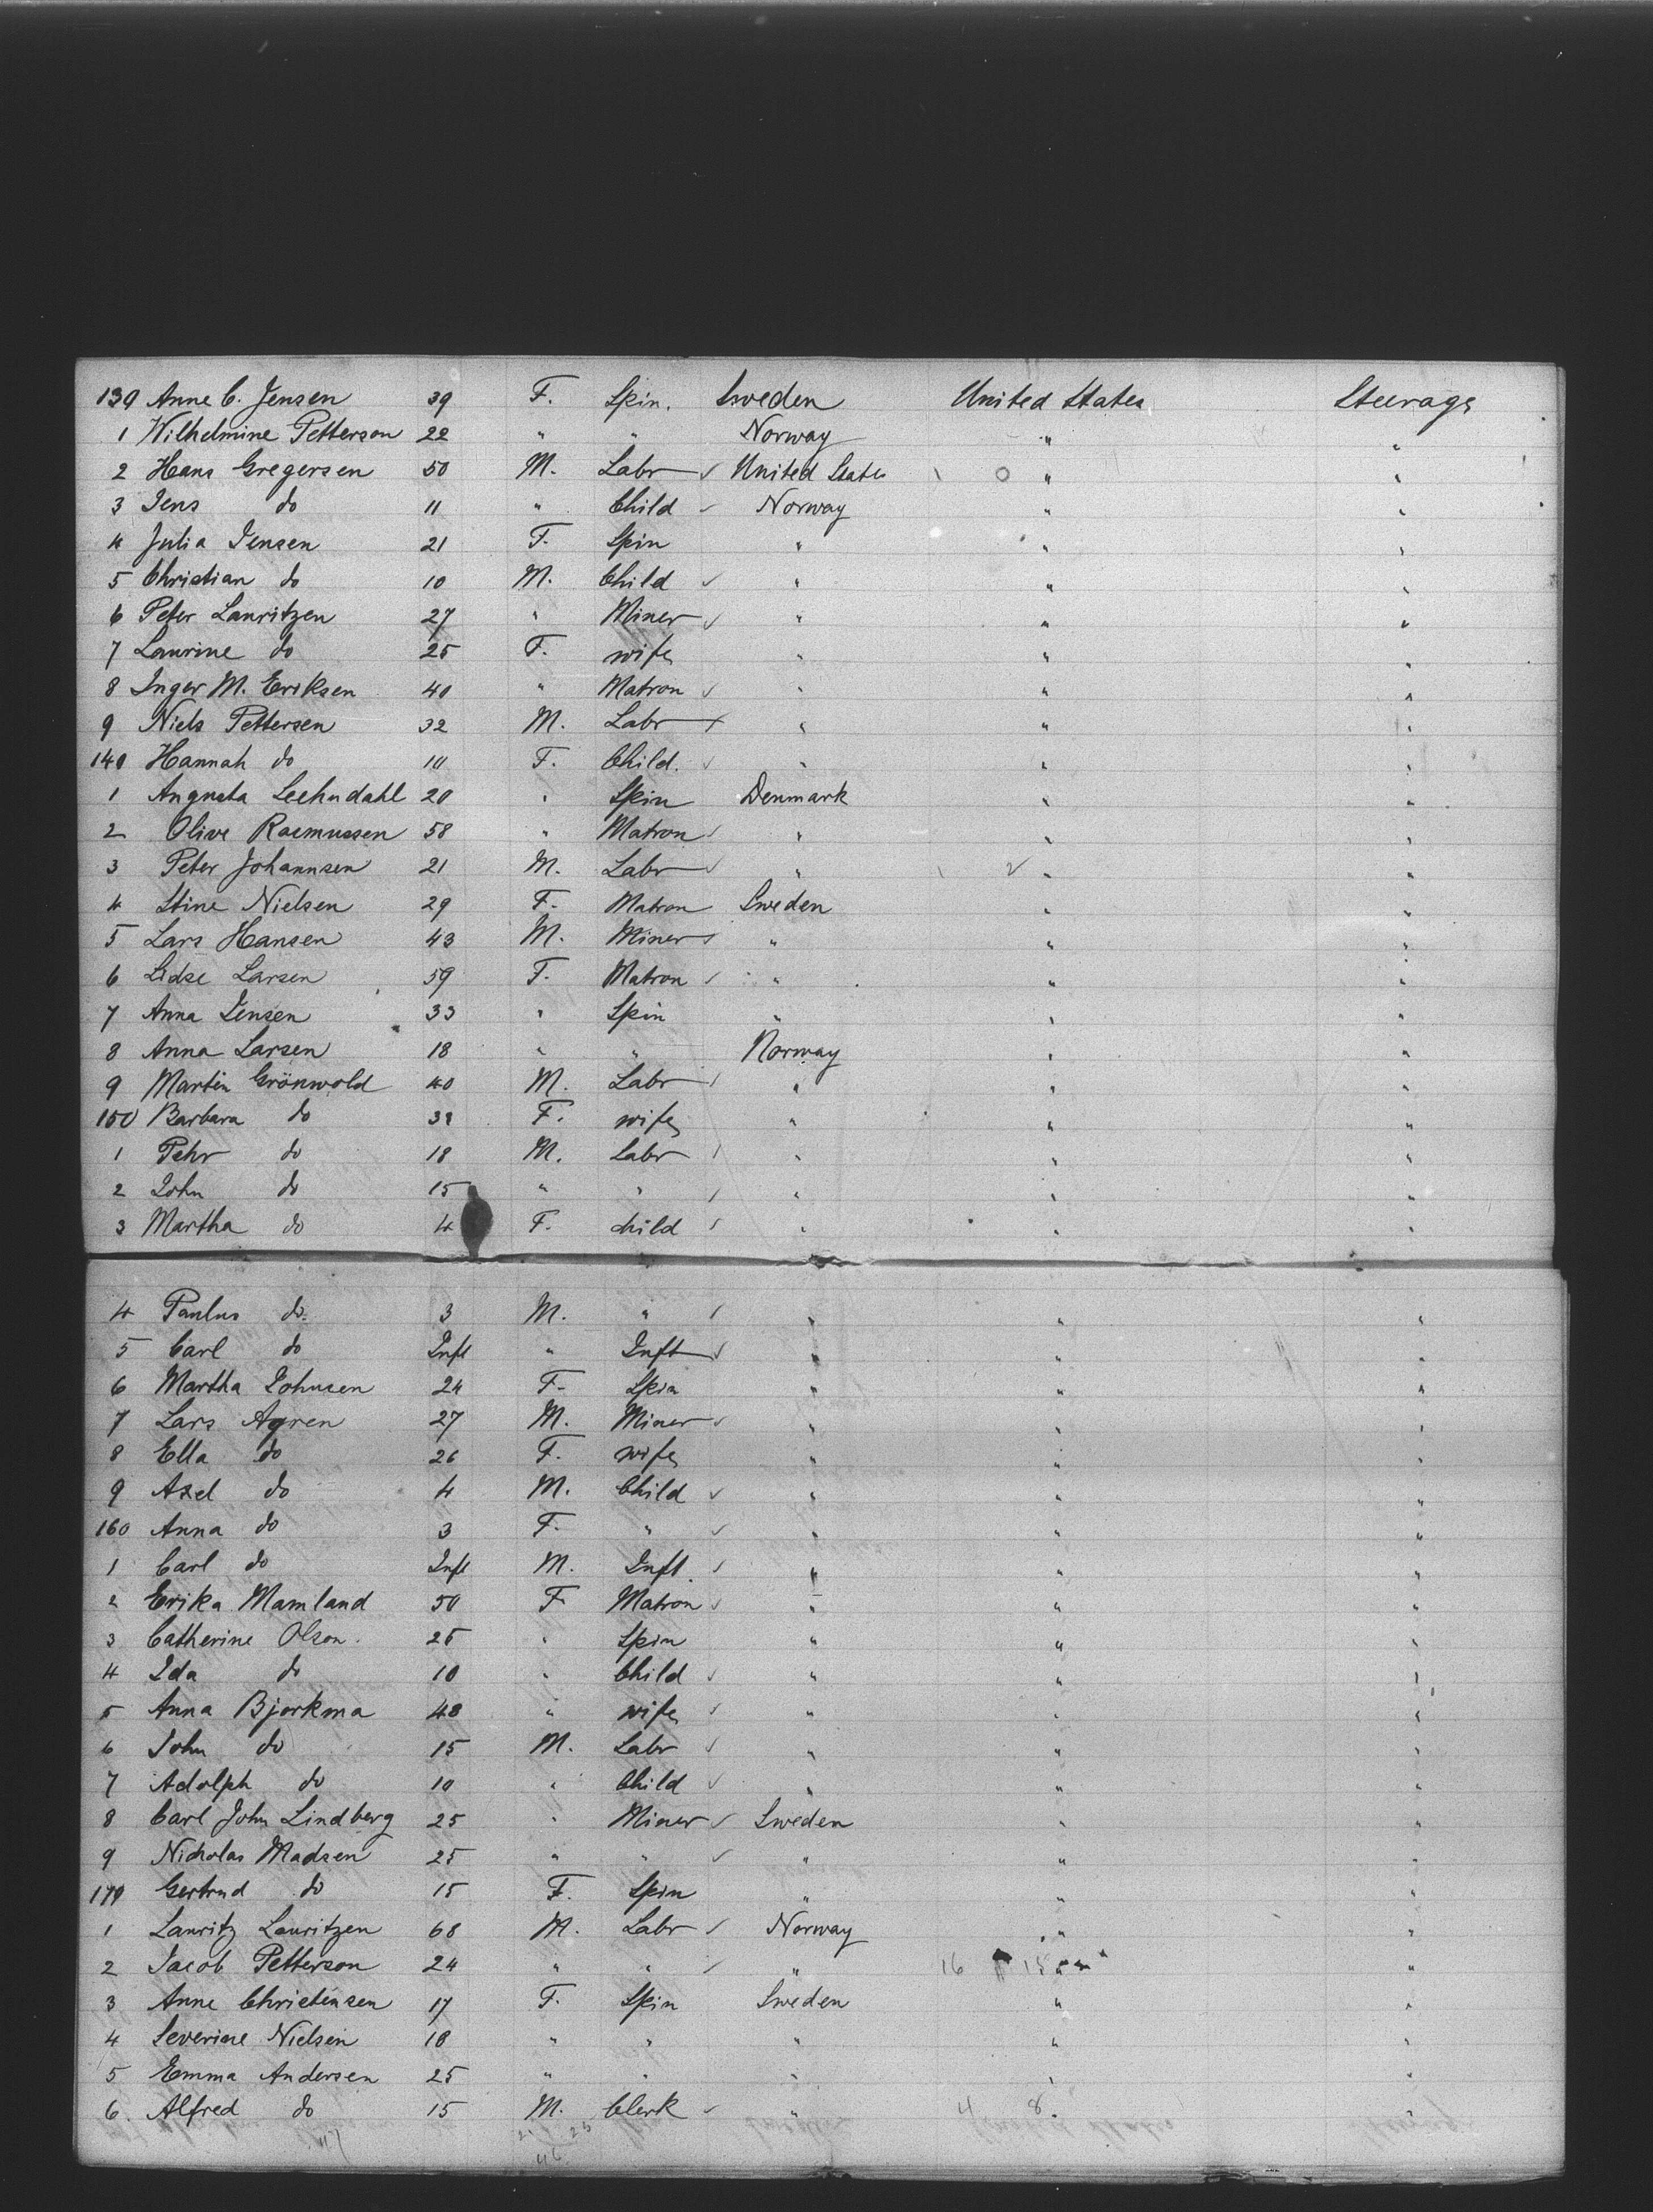 130 Anne C. Jensen 39 F. Spin. Sweden United States Steerage
1 Wilhelmine Petterson 22 " " Norway " "
2 Hans Gregersen 50 M. Labr United States " "
3 Jens do 11 " Child Norway " "
4 Julia Jensen 21 F. Spin " " "
5 Christian do 10 M. Child " " "
6 Peter Lauritzen 27 " Miner " " "
7 Laurine do 25 F. wife " " "
8 Inger M. Eriksen 40 " Matron " " "
9 Niels Pettersen 32 M. Labr " " "
140 Hannah do 10 F. Child. " " "
1 Augusta Leehndahl 20 " Spin Denmark " "
2 Olive Rasmussen 58 " Matron " " "
3 Peter Johannsen 21 M. Labr " " "
4 Stine Nielsen 29 F. Matron Sweden " "
5 Lars Hansen 43 M. Miner " " "
6 Lidse Larsen 59 F. Matron " " "
7 Anna Jensen 33 " Spin " " "
8 Anna Larsen 18 " " Norway " "
9 Martin Grönwold 40 M. Labr " " "
150 Barbara do F. wife " " "
1 Pehr do 18 M. Labr " " "
2 John do 15 " " " " "
3 Martha do 4 F. child " " "
4 Paulus do. 3 M. " " " "
5 Carl do Inft " Inft " " "
6 Martha Johnsen 24 F. Spin " " "
7 Lars Agren 27 M. Miner " " "
8 Ella do 26 F. wife " " "
9 Axel do 4 M. Child " " "
160 Anna do 3 F. " " " "
1 Carl do Inft M. Inft. " " "
2 Erika Mamland 50 F Matron " " "
3 Catherine Olson. 25 " Spin " " "
4 Ida do 10 " Child " " "
5 Anna Bjorkma 48 " wife " " "
6 John do 15 M. Labr " " "
7 Adolph do 10 " Child " " "
8 Carl John Lindberg 25 " Miner Sweden " "
9 Nicholas Madsen 25 " " " " "
170 Gertrud do 15 F. Spin " " "
1 Lauritz Lauritzen 68 M. Labr Norway " "
2 Jacob Petterson 24 " " " 16 " "
3 Anne Christensen 17 F. Spin Sweden " "
4 Severine Nielsen 18 " " " " "
5 Emma Andersen 25 " " " " "
6. Alfred do 15 M. Clerk " 4 8 " "